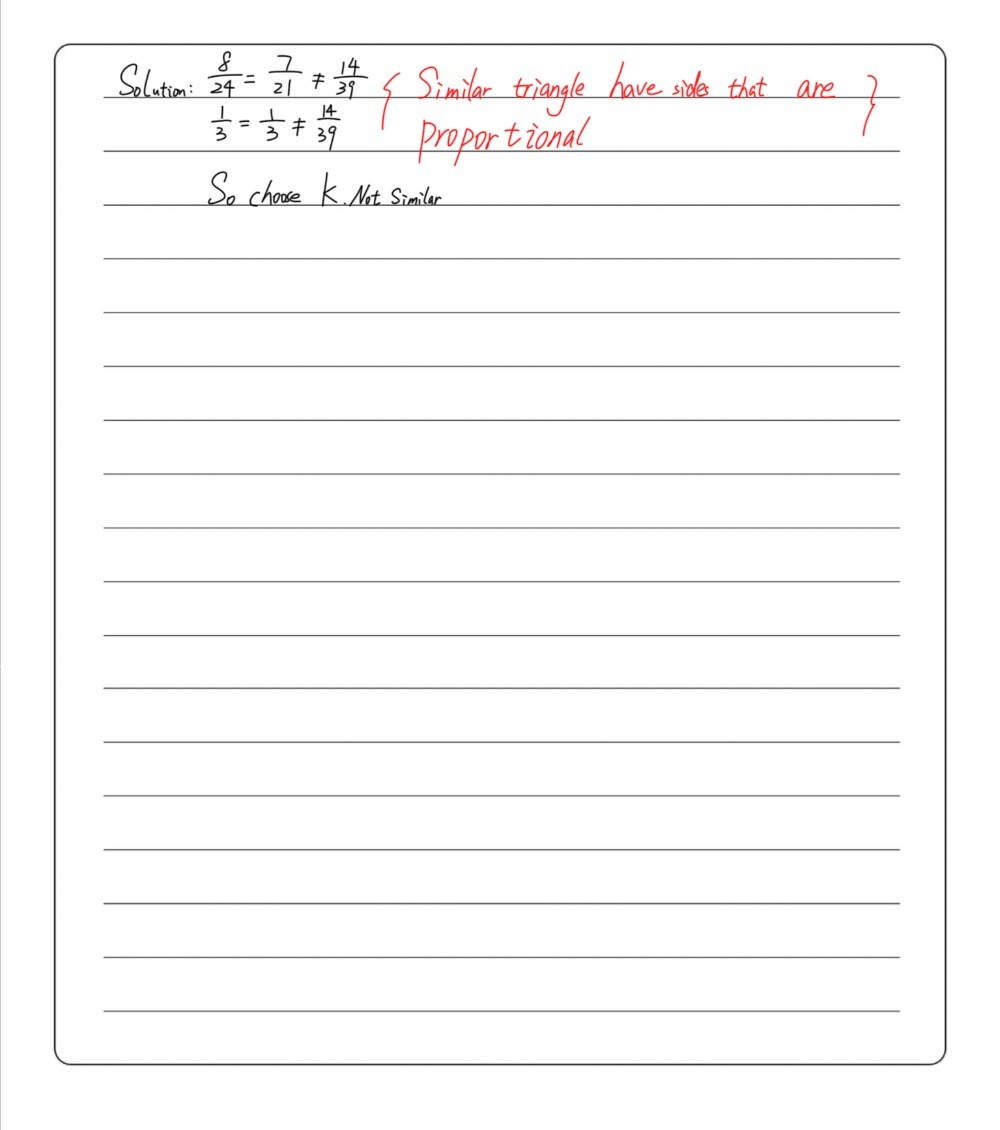 Solution: 8/24 = 7/21 ≠ 14/39 { Similar triangle have sides that are }
1/3 = 1/3 ≠ 14/39 proportional
So choose K. Not Similar